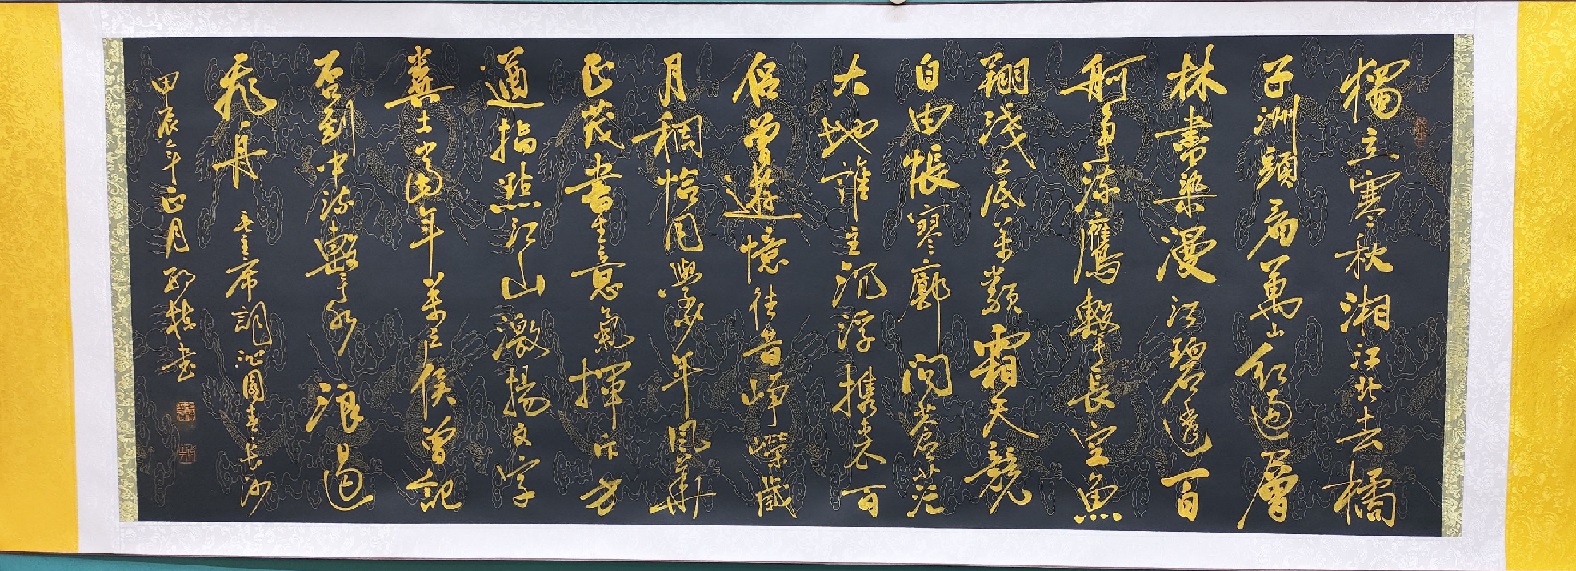 獨立寒秋湘江北去橘
子洲頭看萬山紅遍層
林盡染漫江碧透百
舸爭流鷹擊長空魚
翔淺底萬類霜天競
自由悵寥廓問蒼茫
大地誰主沉浮攜來百
侶曾遊憶往昔崢嶸歲
月稠恰同學少年風華
正茂書生意氣揮斥方
遒指點江山激揚文字
糞土當年萬户侯曾記
否到中流擊水浪遏
飛舟 毛主席詞沁園春長沙
甲辰年正月 书